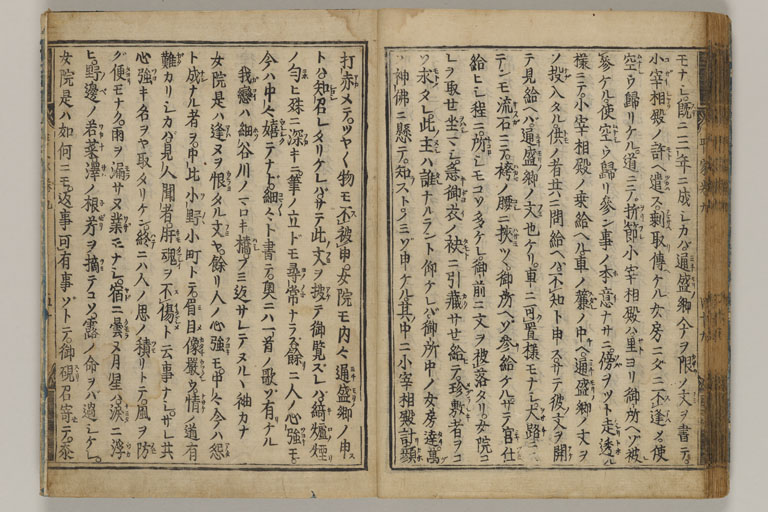 モナシ既ニ三年ニ成シカバ通盛卿今ヲ限ノ文ヲ書テ
小宰相殿ノ許ヘ遣ス剰取傳ケル女房ニダニ不逢シテ使
空ウ歸リケル道ニテ折節小宰相殿ハ里ヨリ御所ヘゾ被
參ケル使空ウ歸リ參ン事ノ本意ナサニ傍ヲツト走透ル
樣ニテ小宰相殿ノ乗給ヘル車ノ簾ノ中ヘ通盛卿ノ文ヲ
ゾ投入タル供ノ者共ニ問給ヘバ不知ト申スサテ彼文ヲ開
テ見給ヘバ通盛卿ノ文也ケリ車ニ可置樣モナシ大路ニ
テンモ流石ニテ袴ノ腰ニ挾ツヽ御所ヘゾ參給ケルサテ官仕
給ヒシ程ニ所シモコソ多ケレ御前ニ文ヲ被落タリ女院コ
レヲ取セ坐マシ急御衣ノ袂ニ引藏サセ給テ珍敷者ヲコ
ソ求タレ此主ハ誰ナルラント仰ケレバ御所中ノ女房達萬
ノ神佛ニ懸テ知ズトノミゾ申ケル其中ニ小宰相殿計顔
打赤メテツヤ〳〵物モ不被申女院モ内々通盛卿ノ申
トハ知召レタリケレバサテ此文ヲ披テ御覧ズレバ綺爐煙
ノ匂ヒ殊ニ深キニ筆ノ立ドモ尋常ナラズ餘ニ人ノ心強モ
今ハ中々嬉テナド細々ト書テ奥ニハ一首ノ歌ゾ有ケル
我戀ハ細谷川ノマロキ橋フミ返サレテヌルヽ袖カナ
女院是ハ逢ヌヲ恨タル文ヤ餘リ人ノ心強モ中々今ハ怨
ト成ナル者ヲ中比小野小町トテ眉目像嚴ウ情ノ道有
難カリシカバ見人聞者肝魂ヲ不傷ト云事ナシサレ共
心強キ名ヲヤ取タリケン終ニハ人ノ思ノ積リトテ風ヲ防
グ便モナク雨ヲ漏サヌ業モナシ宿ニ曇ヌ月星ハ涙ニ浮
ビ野邊ノ若菜澤ノ根芹ヲ摘テコソ露ノ命ヲバ過シケレ
女院是ハ如何ニモ返事可有事ゾトテ御硯召寄テ忝